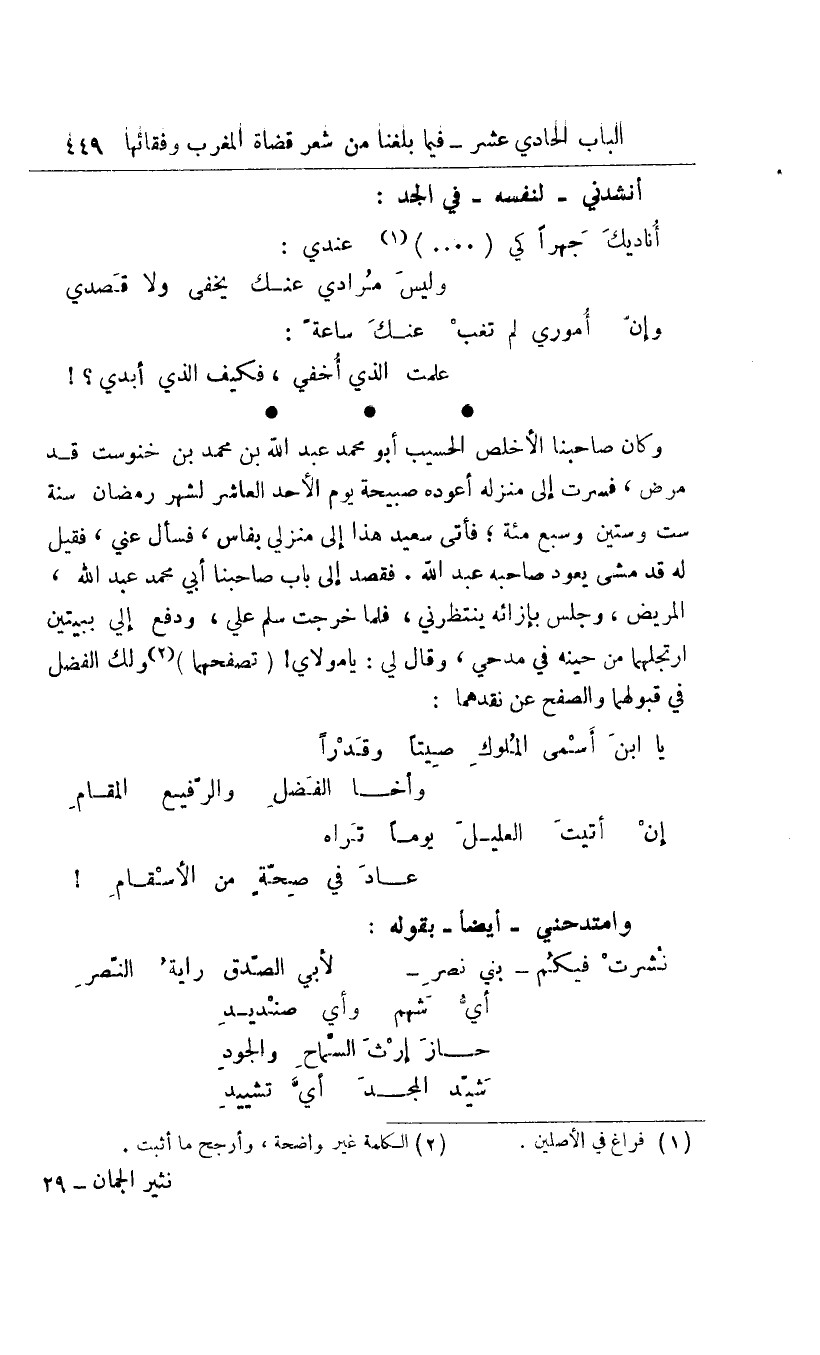 الباب الحادي عشر ـ فيما بلغنا من شعر قضاة المغرب وفقهائها ٤٤٩
أنشدني ـ لنفسه ـ في الجد :
أُناديكَ جَهراً كي ( .... )(١) عندي :
وليسَ مُرادي عنـك يخفى ولا قَصدي
وإنّ أُموري لم تغبْ عنـكَ ساعةً :
علمت الذي أُخفي ، فكيف الذي أبدي ؟ !
● ● ●
وكان صاحبنا الأخلص الحسيب أبو محمد عبد الله بن محمد بن خنوست قـد
مرض ، فسرت إلى منزله أعوده صبيحة يوم الأحد العاشر لشهر رمضان سنة
ست وستين وسبع مئة ؛ فأتى سعيد هذا إلى منزلي بفاس ، فسأل عني ، فقيل
له قد مشى يعود صاحبه عبد الله . فقصد إلى باب صاحبنا أبي محمد عبد الله ،
المريض ، وجلس بإزائه ينتظرني ، فلما خرجت سلم علي ، ودفع إلي ببيتين
ارتجلهما من حينه في مدحي ، وقال لي : يامولاي! ( تصفحهما )(٢) ولك الفضل
في قبولهما والصفح عن نقدهما :
يا ابنَ أَسْمى المُلوكِ صِيتاً وقَدْراً
وأخـا الفَضلِ والرّفيع المقـامِ
إنْ أتيتَ العليـلَ يومـاً تَراه
عـادَ في صِحّةٍ من الأسْقـامِ !
وامتدحني ـ أيضاً ـ بقوله :
نُشرتْ فيكُم ـ بني نصرٍ ـ لأبي الصّدق رايةُ النّصرِ
أيُّ شَهم وأي صنْديـدِ
حـازَ إرْثَ السَّماحِ والجودِ
شَيّد المجـدَ أيَّ تشييدِ
(١) فراغ في الأصلين . (٢) الكلمة غير واضحة ، وأرجح ما أثبت .
نثير الجمان ـ ٢٩